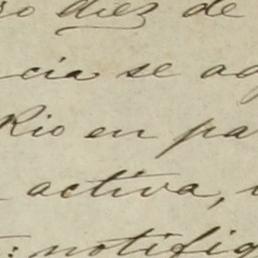 diez de
cia se
Rio en pa
activa,
: notifiq